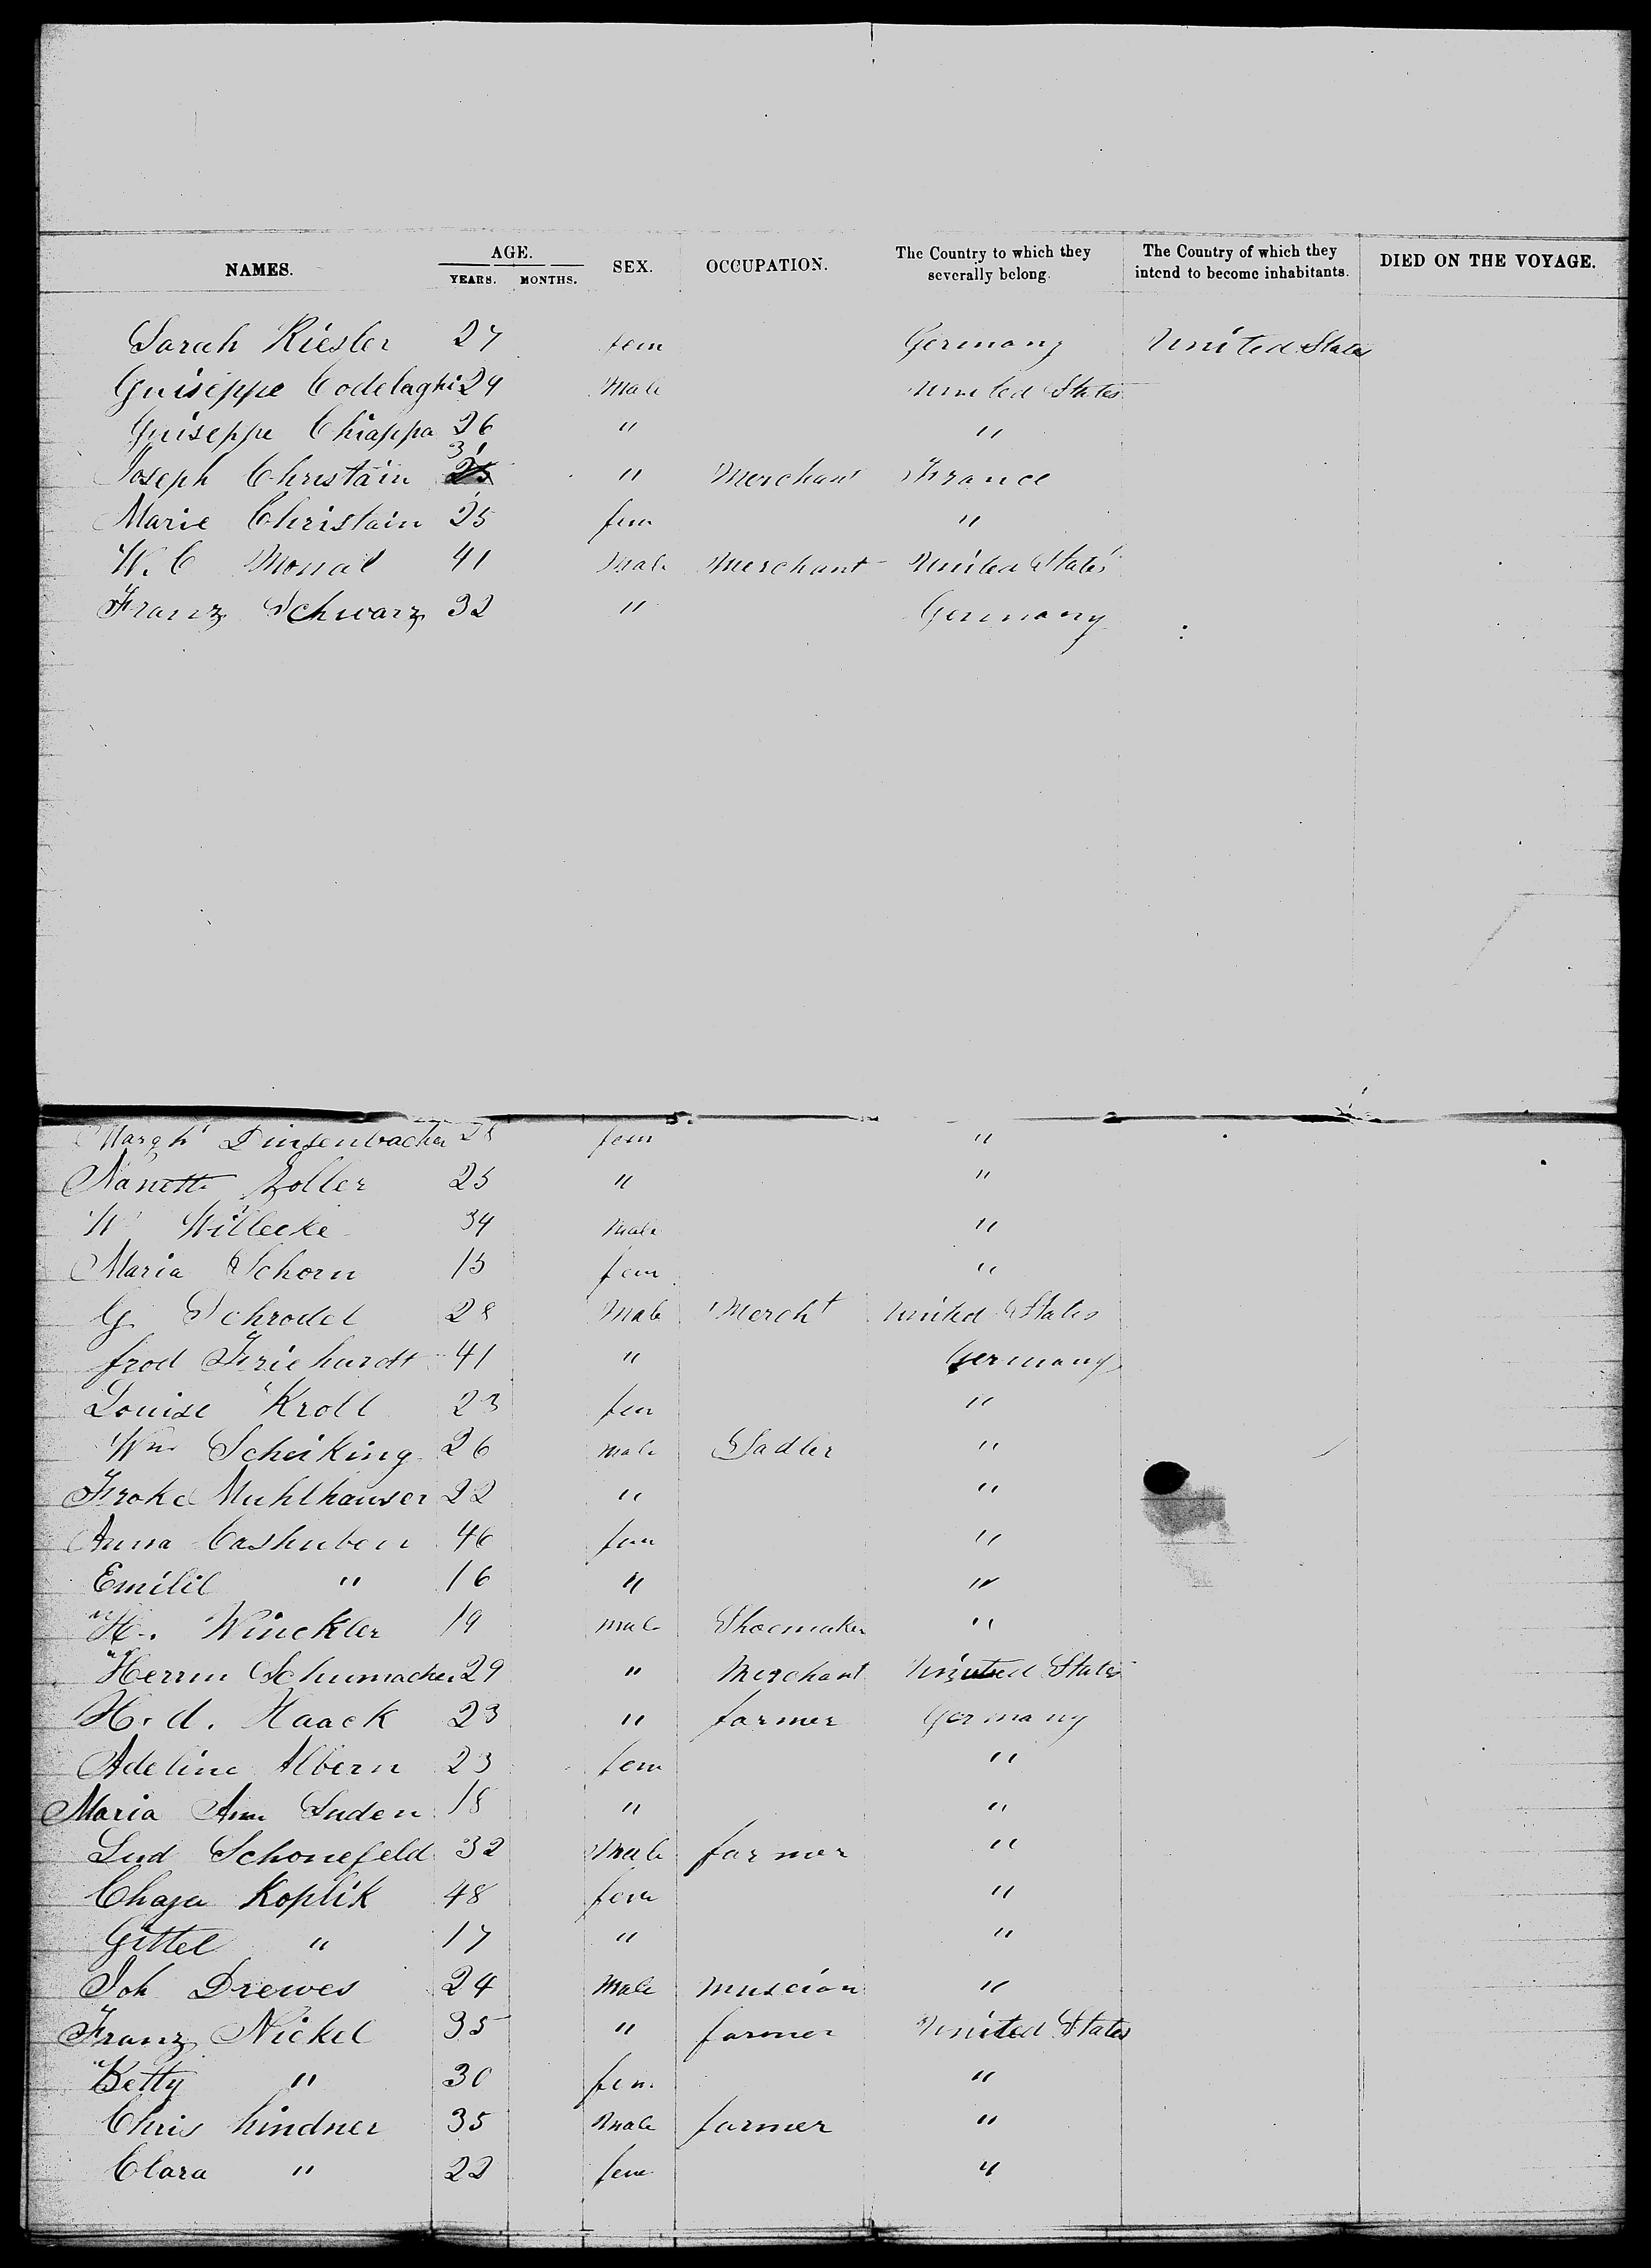 NAMES. AGE. YEARS. MONTHS. SEX. OCCUPATION. The Country to which they severally belong. The Country of which they intend to become inhabitants. DIED ON THE VOYAGE.
Sarah Kiesler 27 fem Germany United States
Guiseppe Codelaghi 29 Male United States
Guiseppe Chiappa 26 " "
Joseph Christain 31 " Merchant France
Marie Christain 25 fem "
W. C Monal 41 Male Merchant United States
Franz Schwarz 32 " Germany
Margh Dinsenbacher 28 fem "
Nanette Zoller 25 " "
W Willecke 34 Male "
Maria Schorn 15 fem "
G. Schrodel 28 Male Mercht United States
frod Friehardt 41 " Germany
Louise Kroll 23 fem "
Wm Scheiking 26 male Sadler "
Froke Muhlhauser 22 " "
Anna Cashuben 46 fem "
Emilil " 16 " "
H. Winckler 19 male Shoemaker "
Herrm Schumacher 29 " Merchant United States
H. d. Haack 23 " farmer Germany
Adeline Albern 23 fem "
Maria Ann Suden 18 " "
Lud Schonefeld 32 Male farmer "
Chaja Koplik 48 fem "
Gittel " 17 " "
Joh Drewes 24 Male muscian "
Franz Nickel 35 " farmer United States
Betty " 30 fem. "
Chris Lindner 35 Male farmer "
Clara " 22 fem "